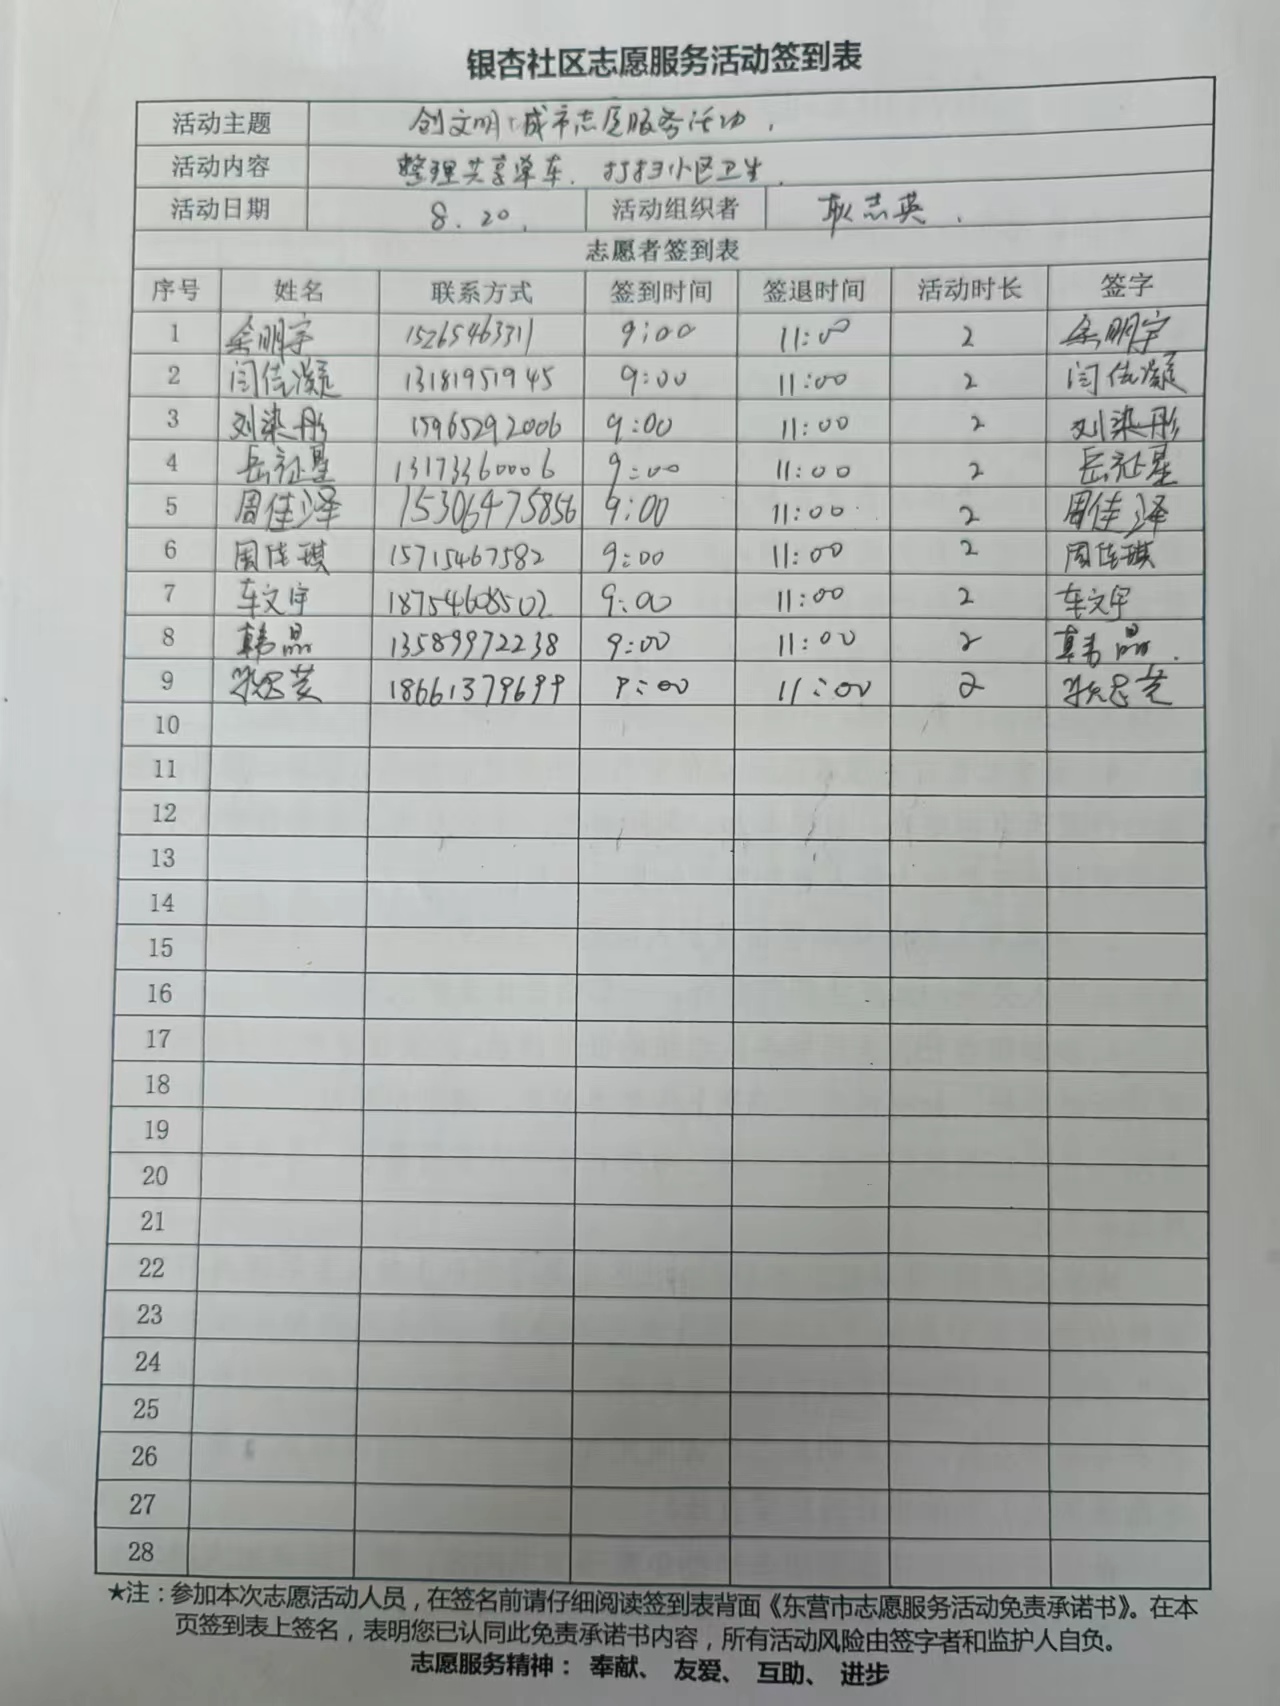 银杏社区志愿服务活动签到表
活动主题 创文明城市志愿服务活动.
活动内容 整理共享单车. 打扫小区卫生.
活动日期 8.20. 活动组织者 耿志英.
志愿者签到表
序号 姓名 联系方式 签到时间 签退时间 活动时长 签字
1 余明宇 15265463311 9:00 11:00 2 余明宇
2 闫佳凝 13181951945 9:00 11:00 2 闫佳凝
3 刘染彤 15965292006 9:00 11:00 2 刘染彤
4 岳征星 13173360006 9:00 11:00 2 岳征星
5 周佳泽 15306475856 9:00 11:00 2 周佳泽
6 周佳琪 15715467582 9:00 11:00 2 周佳琪
7 车文宇 18754608502 9:00 11:00 2 车文宇
8 韩晶 13589972238 9:00 11:00 2 韩晶.
9 18661379699 9:00 11:00 2
10
11
12
13
14
15
16
17
18
19
20
21
22
23
24
25
26
27
28
★注：参加本次志愿活动人员，在签名前请仔细阅读签到表背面《东营市志愿服务活动免责承诺书》。在本
页签到表上签名，表明您已认同此免责承诺书内容，所有活动风险由签字者和监护人自负。
志愿服务精神： 奉献、 友爱、 互助、 进步